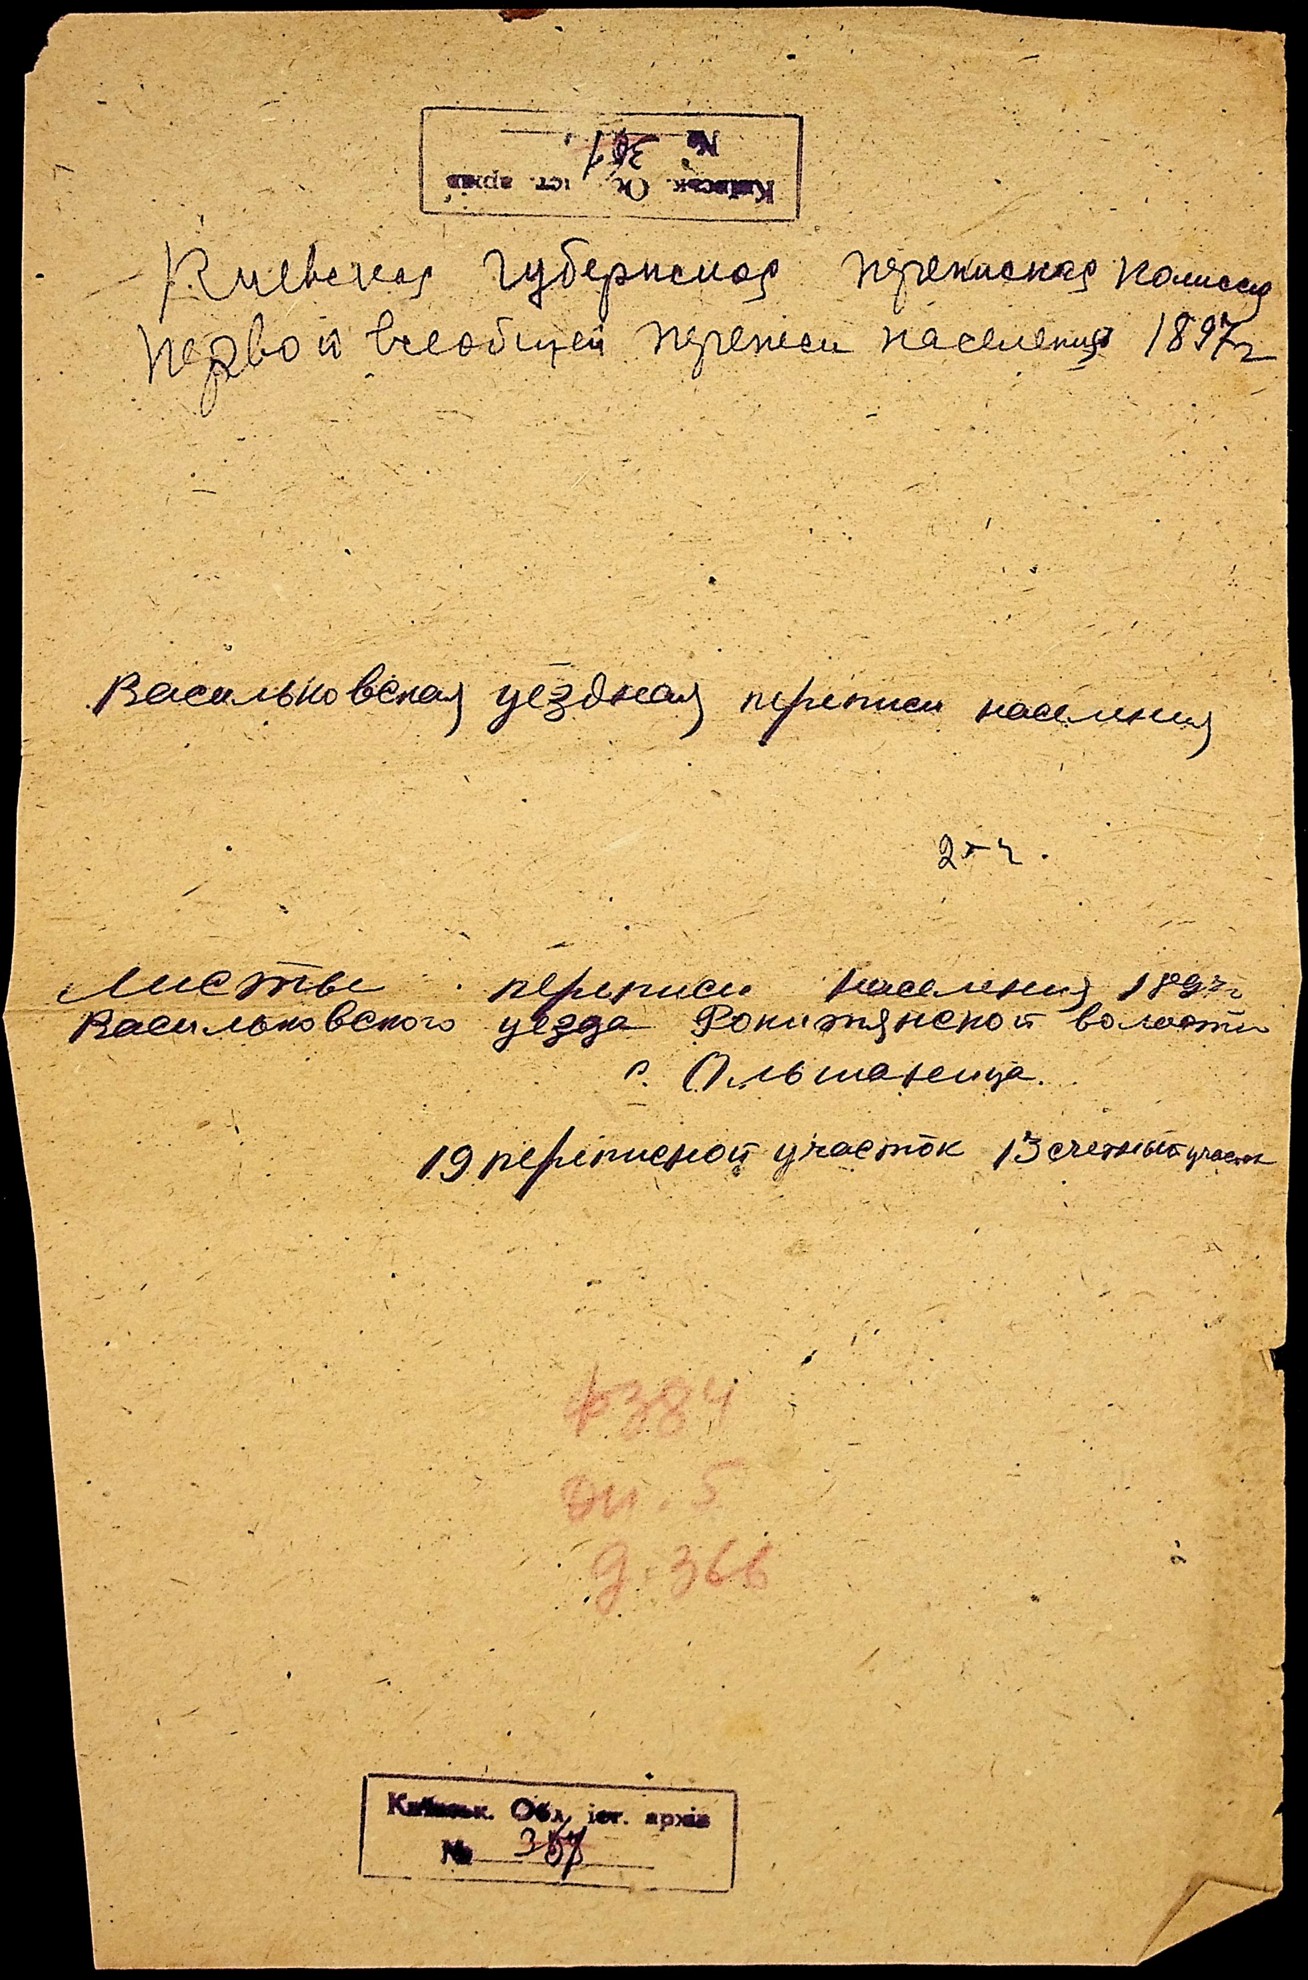 Київськ. Об. іст. архів
№ 367
Киевская губернская переписная комиссия
первой всеобщей переписи населения 1897г
Васильковская уездная переписи населения
2-ч.
Листы переписи населения 1897г
Васильковского уезда Рокитянской волости
с. Ольшаница.
19 переписной участок 13 счетный участок
ф384
оп. 5
д. 366
Київськ. Обл. іст. архів
№ 367